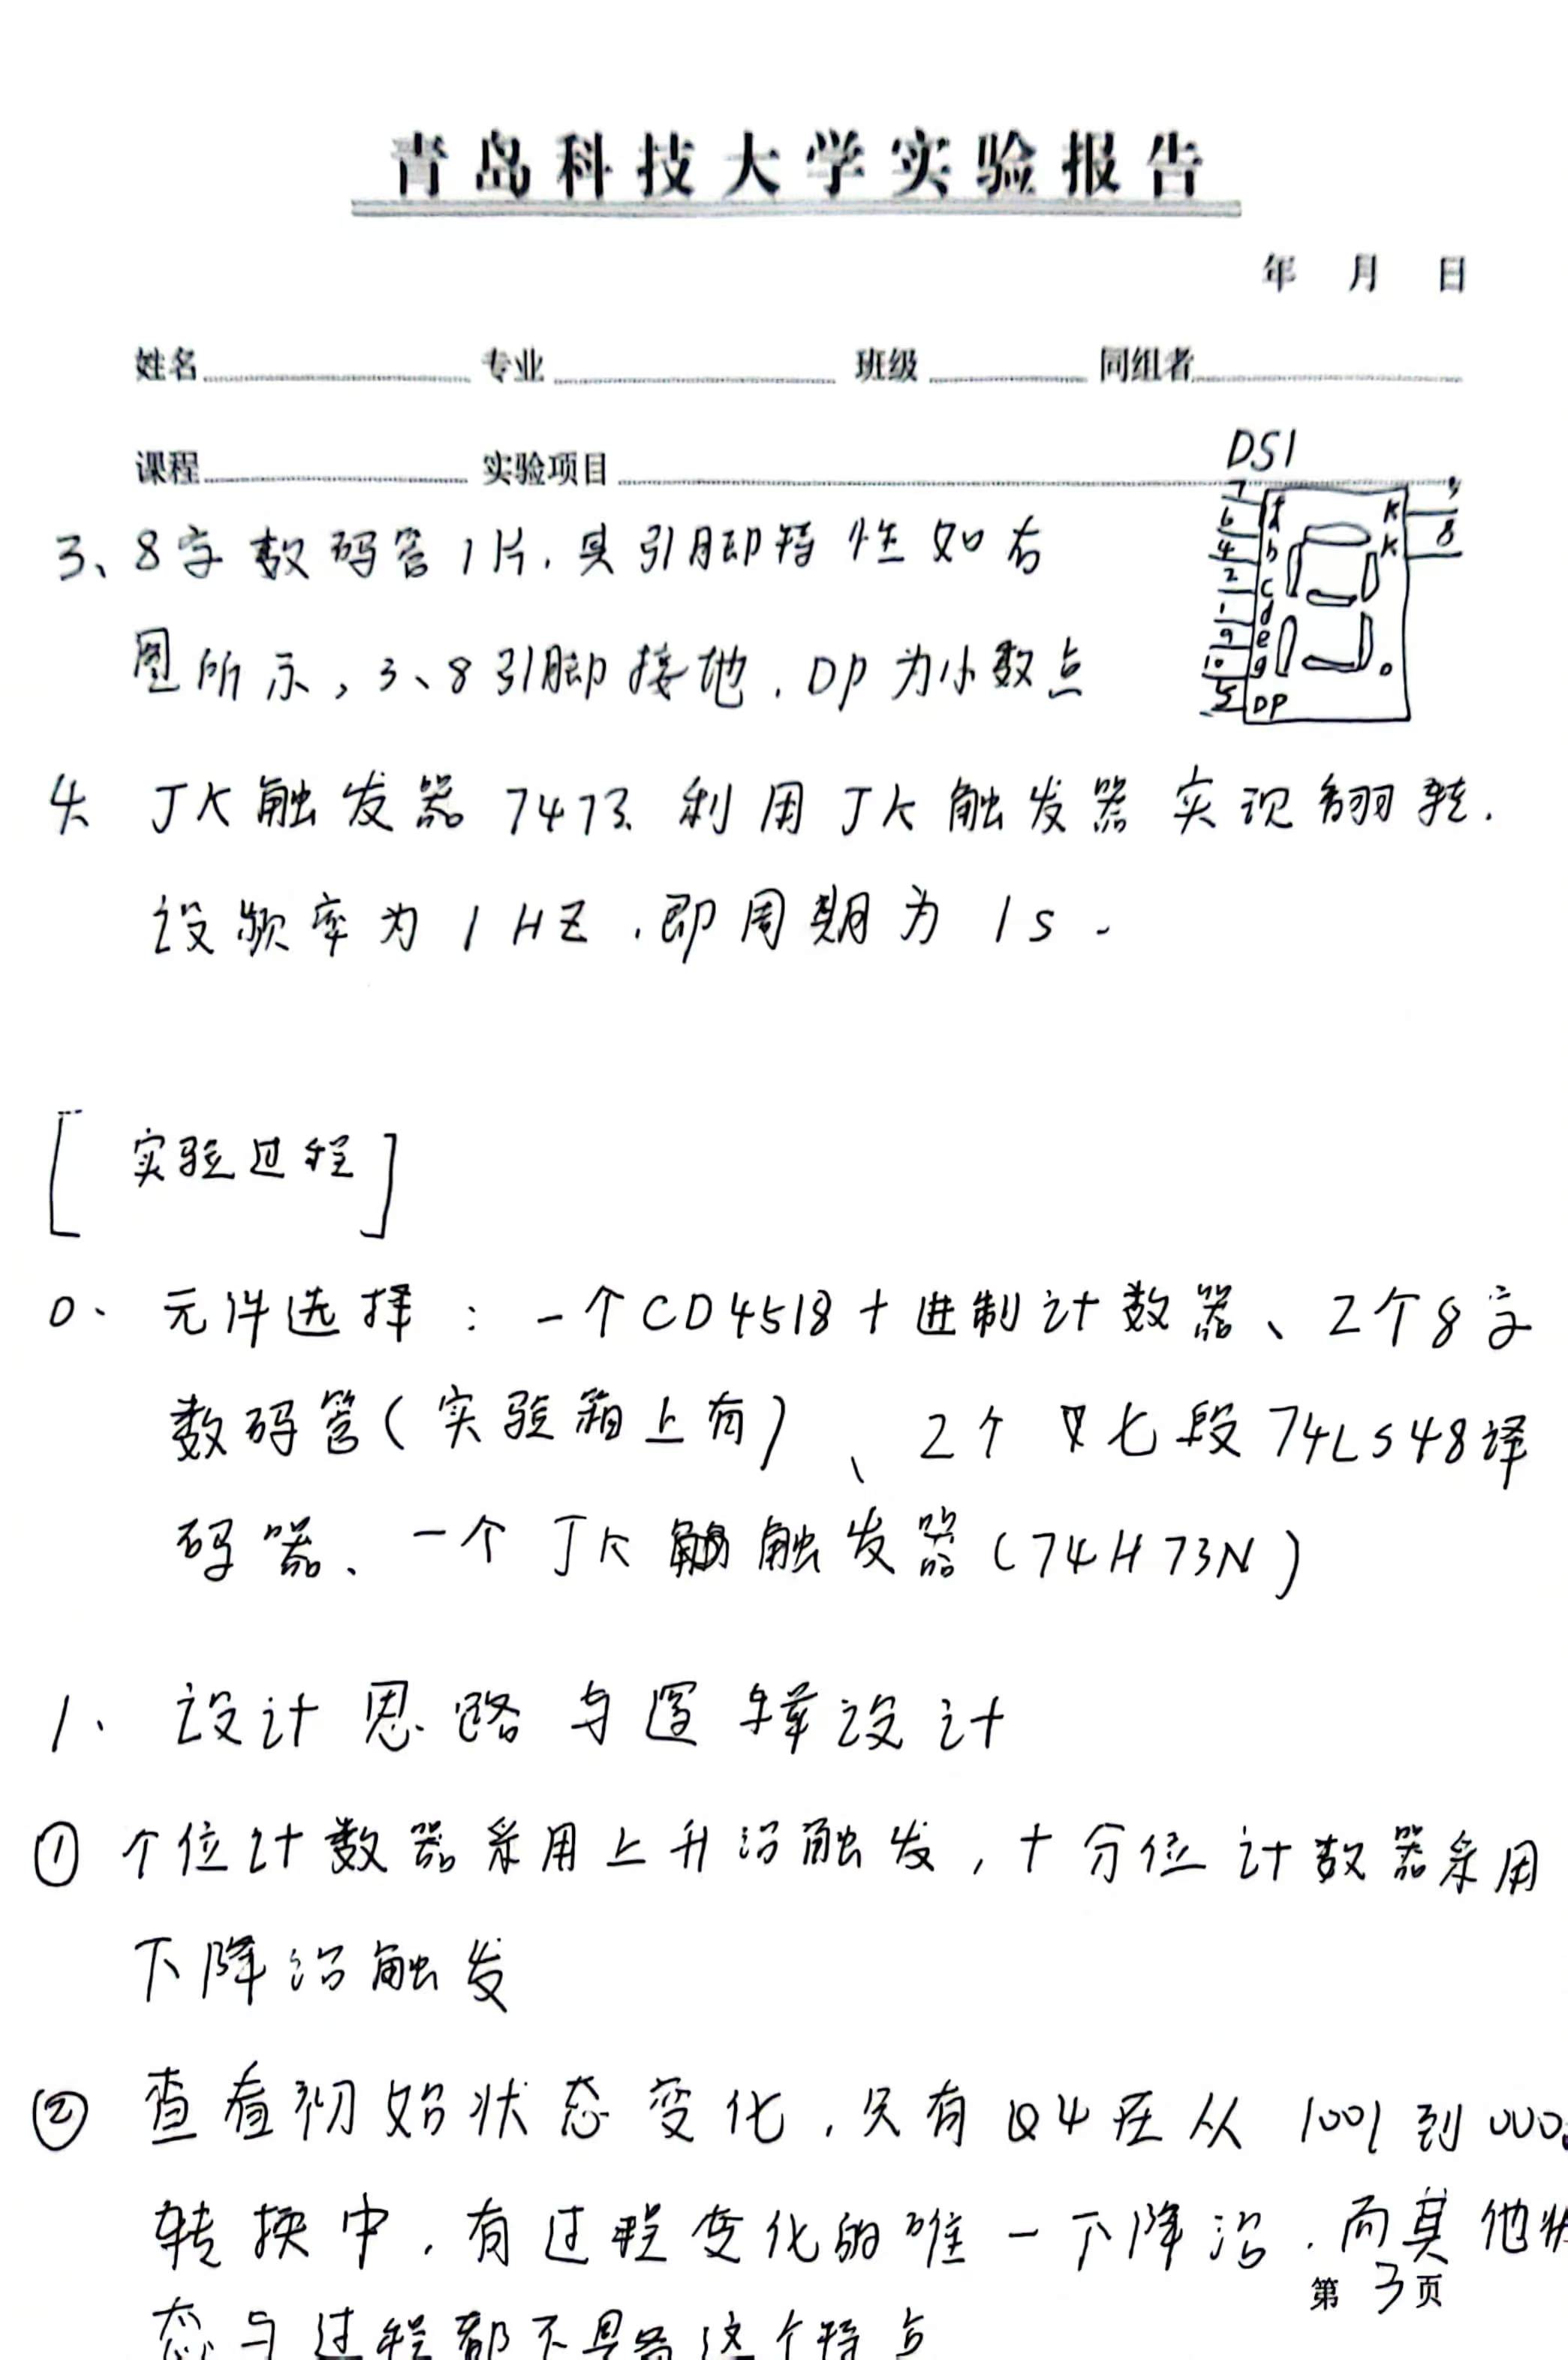 青岛科技大学实验报告
年 月 日
姓名 专业 班级 同组者
课程 实验项目
DS1
7
6 f K
4 b K 8
2 c
1 d
9 e
10 g
5 DP
3、8字数码管1片,其引脚特性如右
图所示,3、8引脚接地,DP为小数点
4、JK触发器7473、利用JK触发器实现翻转.
设频率为1HZ,即周期为1s.
[实验过程]
0、元件选择:一个CD4518十进制计数器、2个8字
数码管(实验箱上有)、2个七段74LS48译
码器、一个JK触发器(74H73N)
1、设计思路与逻辑设计
① 个位计数器采用上升沿触发,十分位计数器采用
下降沿触发
② 查看初始状态变化,只有Q4在从1001到0000
转换中,有过程变化的唯一下降沿,而其他状
态与过程都不具备这个特点
第3页